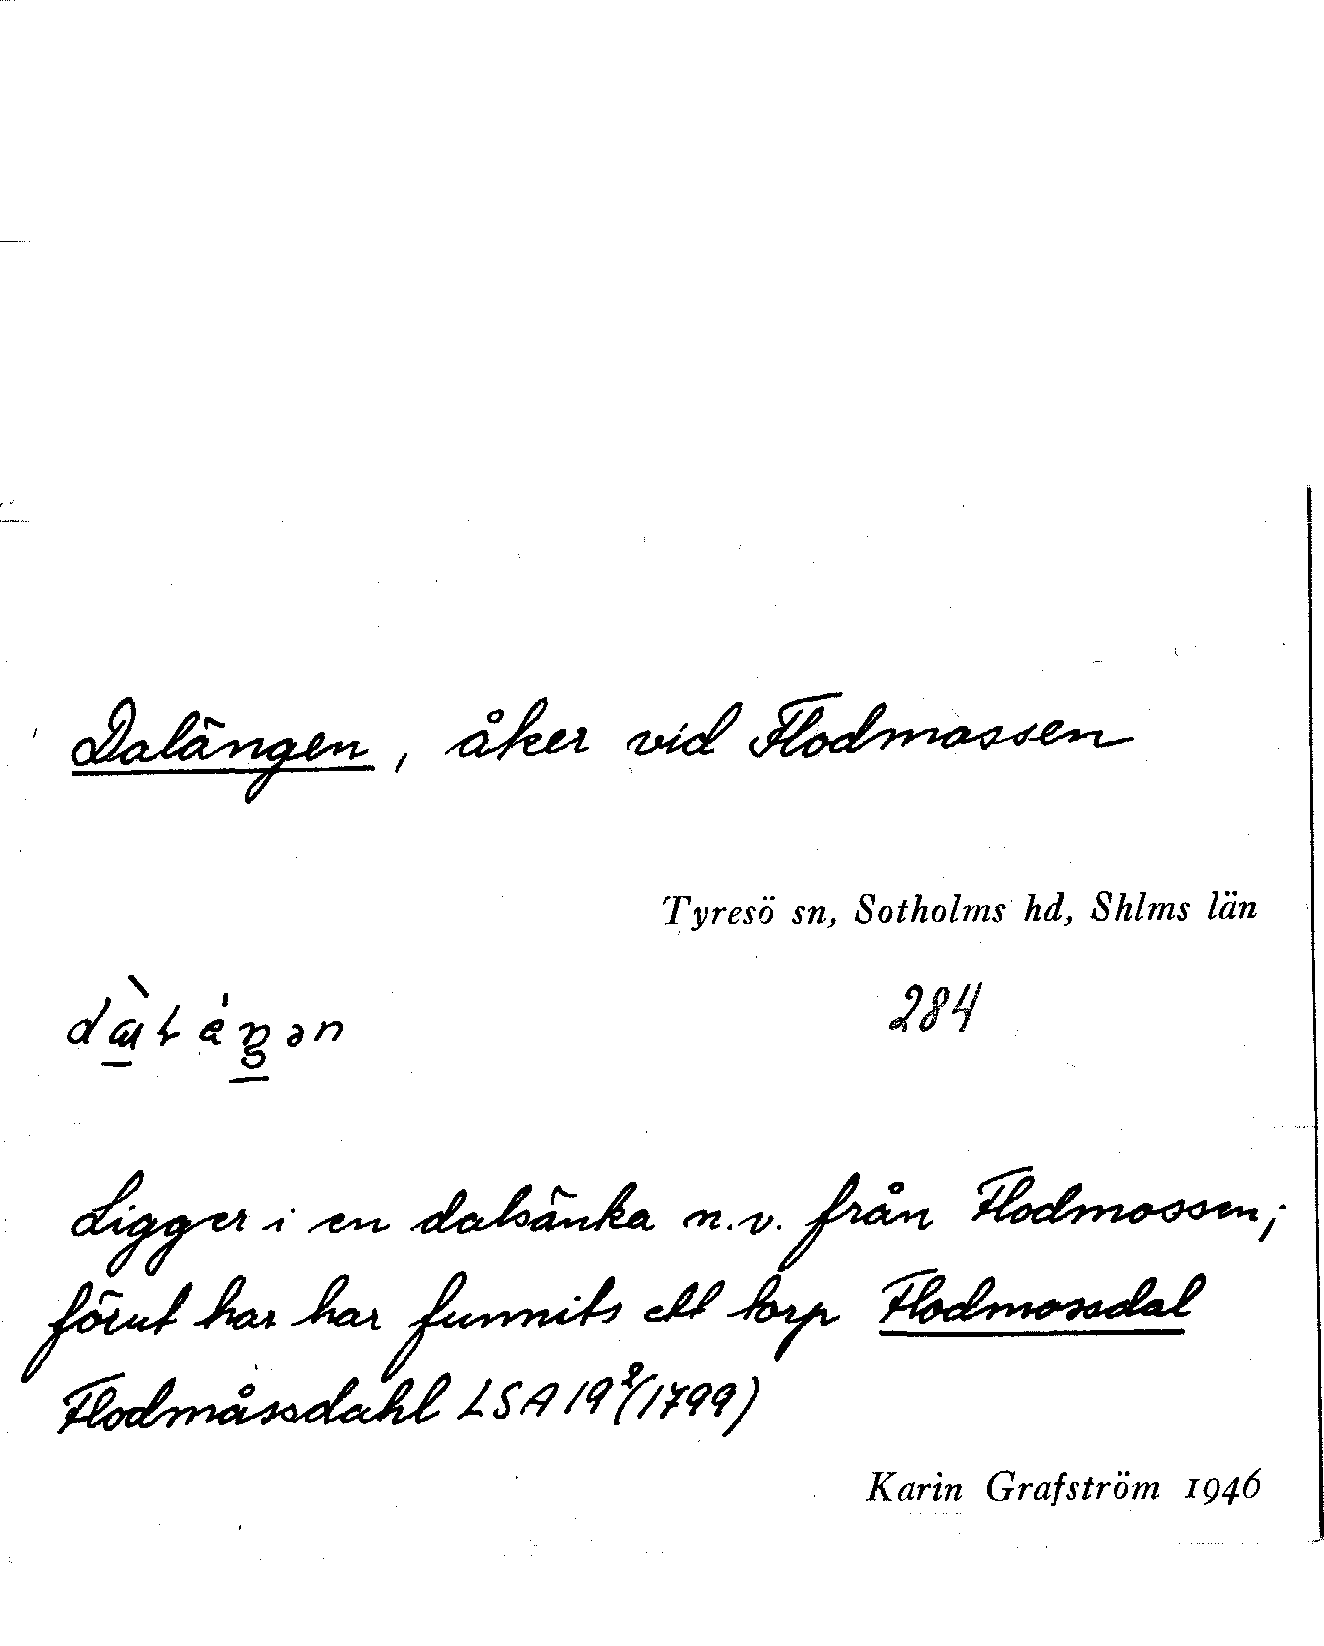 Dalängen, åker vid Flodmossen
Tyresö sn, Sotholms hd, Shlms län
284
Ligger i en dalsänka n.v. från Flodmossen;
förut har har funnits ett torp Flodmossdal
Flodmåssdahl LSA 19²(1799)
Karin Grafström 1946